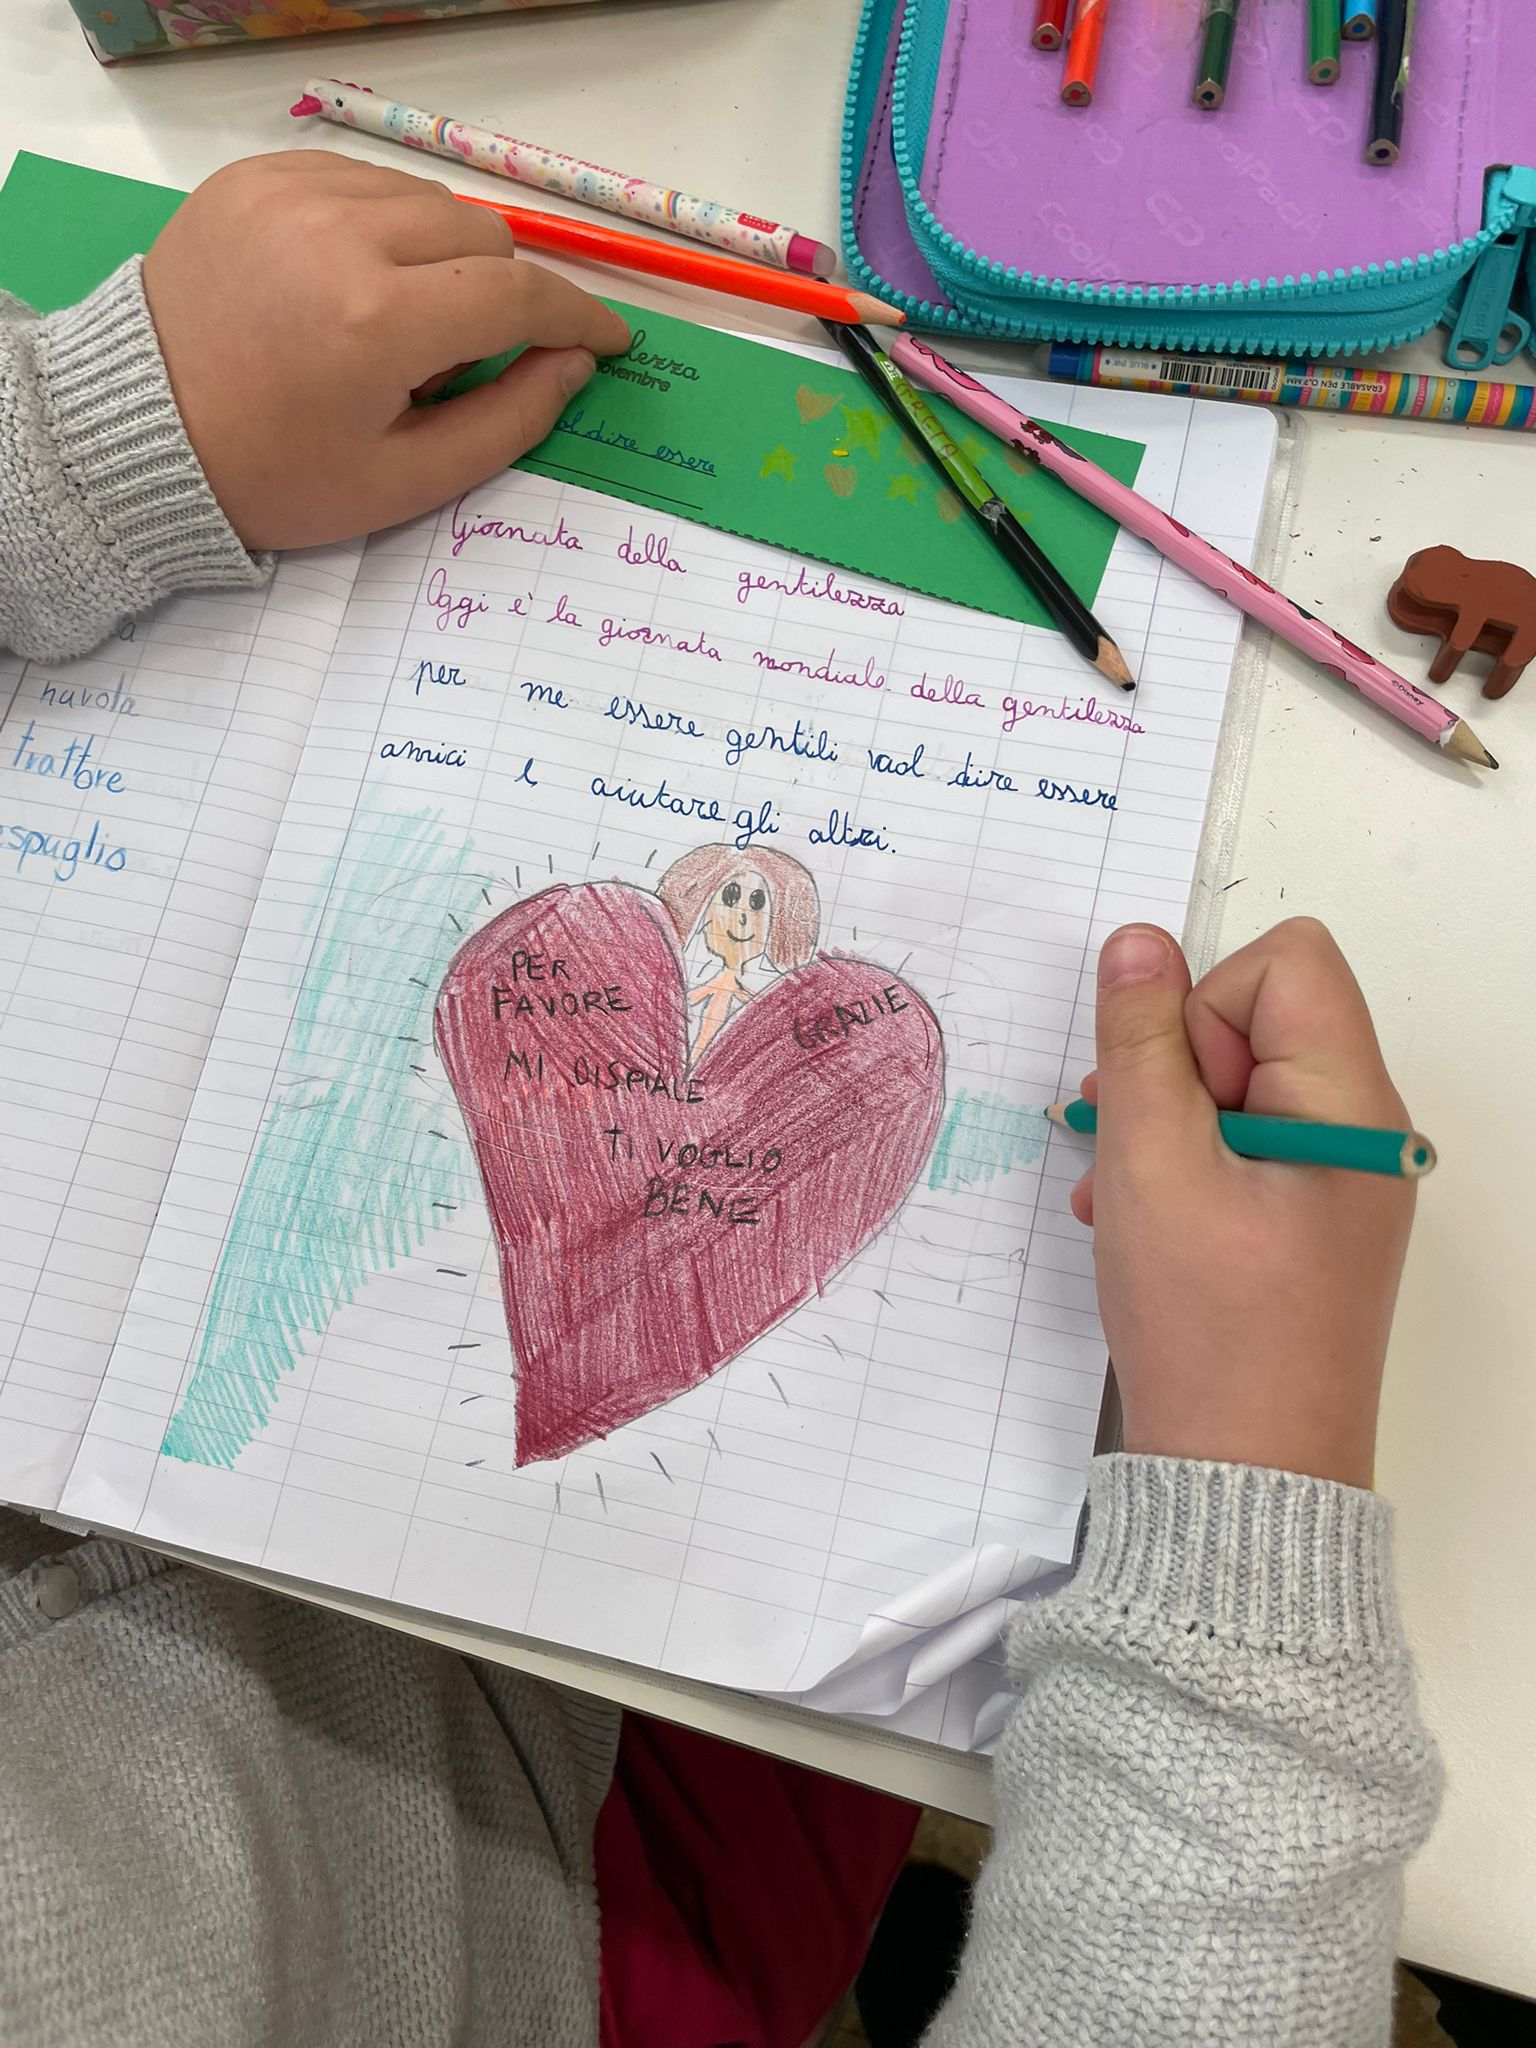 BELIEVE IN MAGIC
lezza
novembre
vol dire essere
ERASABLE PEN 0.7 MM
BLUE INK
©Disney
Giornata della gentilezza
Oggi è la giornata mondiale della gentilezza
per me essere gentili vuol dire essere
amici e aiutare gli altri.
PER
FAVORE
GRAZIE
MI DISPIALE
TI VOGLIO
BENE
a
nuvola
trattore
espuglio